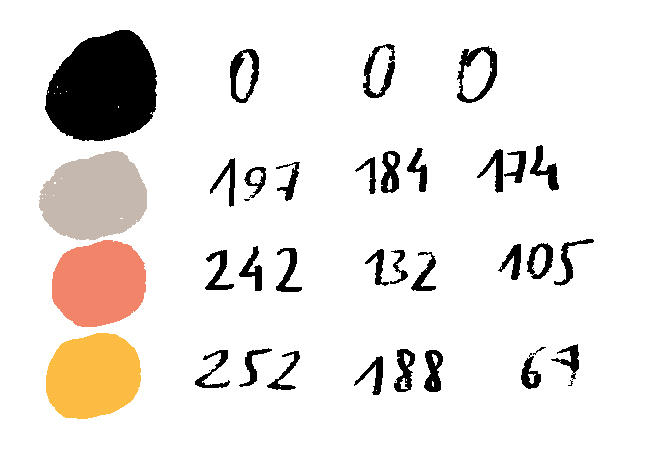 0 0 0
197 184 174
242 132 105
252 188 67